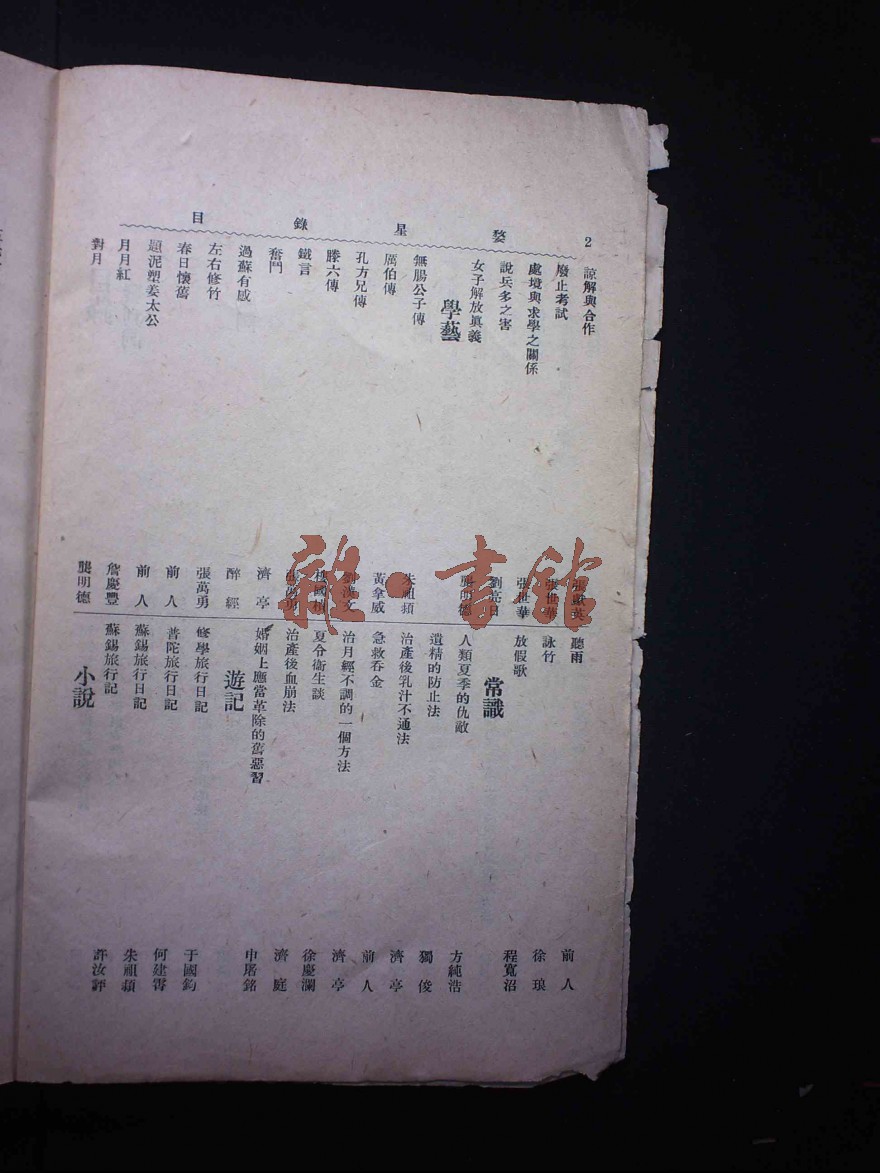 2
婺星錄目
諒解與合作 張獻英
廢止考試 張世華
處境與求學之關係 張世華
說兵多之害 劉亮日
女子解放眞義 龔明德
學藝
無腸公子傳 朱祖蘋
厲伯傳 黃拿威
孔方兄傳 劉漢文
滕六傳 國
鐵言 張萬勇
奮鬥 濟亭
過蘇有感 醉經
左右修竹 張萬勇
春日懷舊 前人
題泥塑姜太公 前人
月月紅 詹慶豐
對月 龔明德
聽雨 前人
詠竹 徐琅
放假歌 程寬沼
常識
人類夏季的仇敵 方純浩
遺精的防止法 獨俊
治產後乳汁不通法 濟亭
急救吞金 前人
治月經不調的一個方法 濟亭
夏令衞生談 徐慶瀾
治產後血崩法 濟庭
婚姻上應當革除的舊惡習 申屠銘
遊記
修學旅行日記 于國鈞
普陀旅行日記 何建霄
蘇錫旅行日記 朱祖蘋
蘇錫旅行記 許汝評
小說
雜·書館